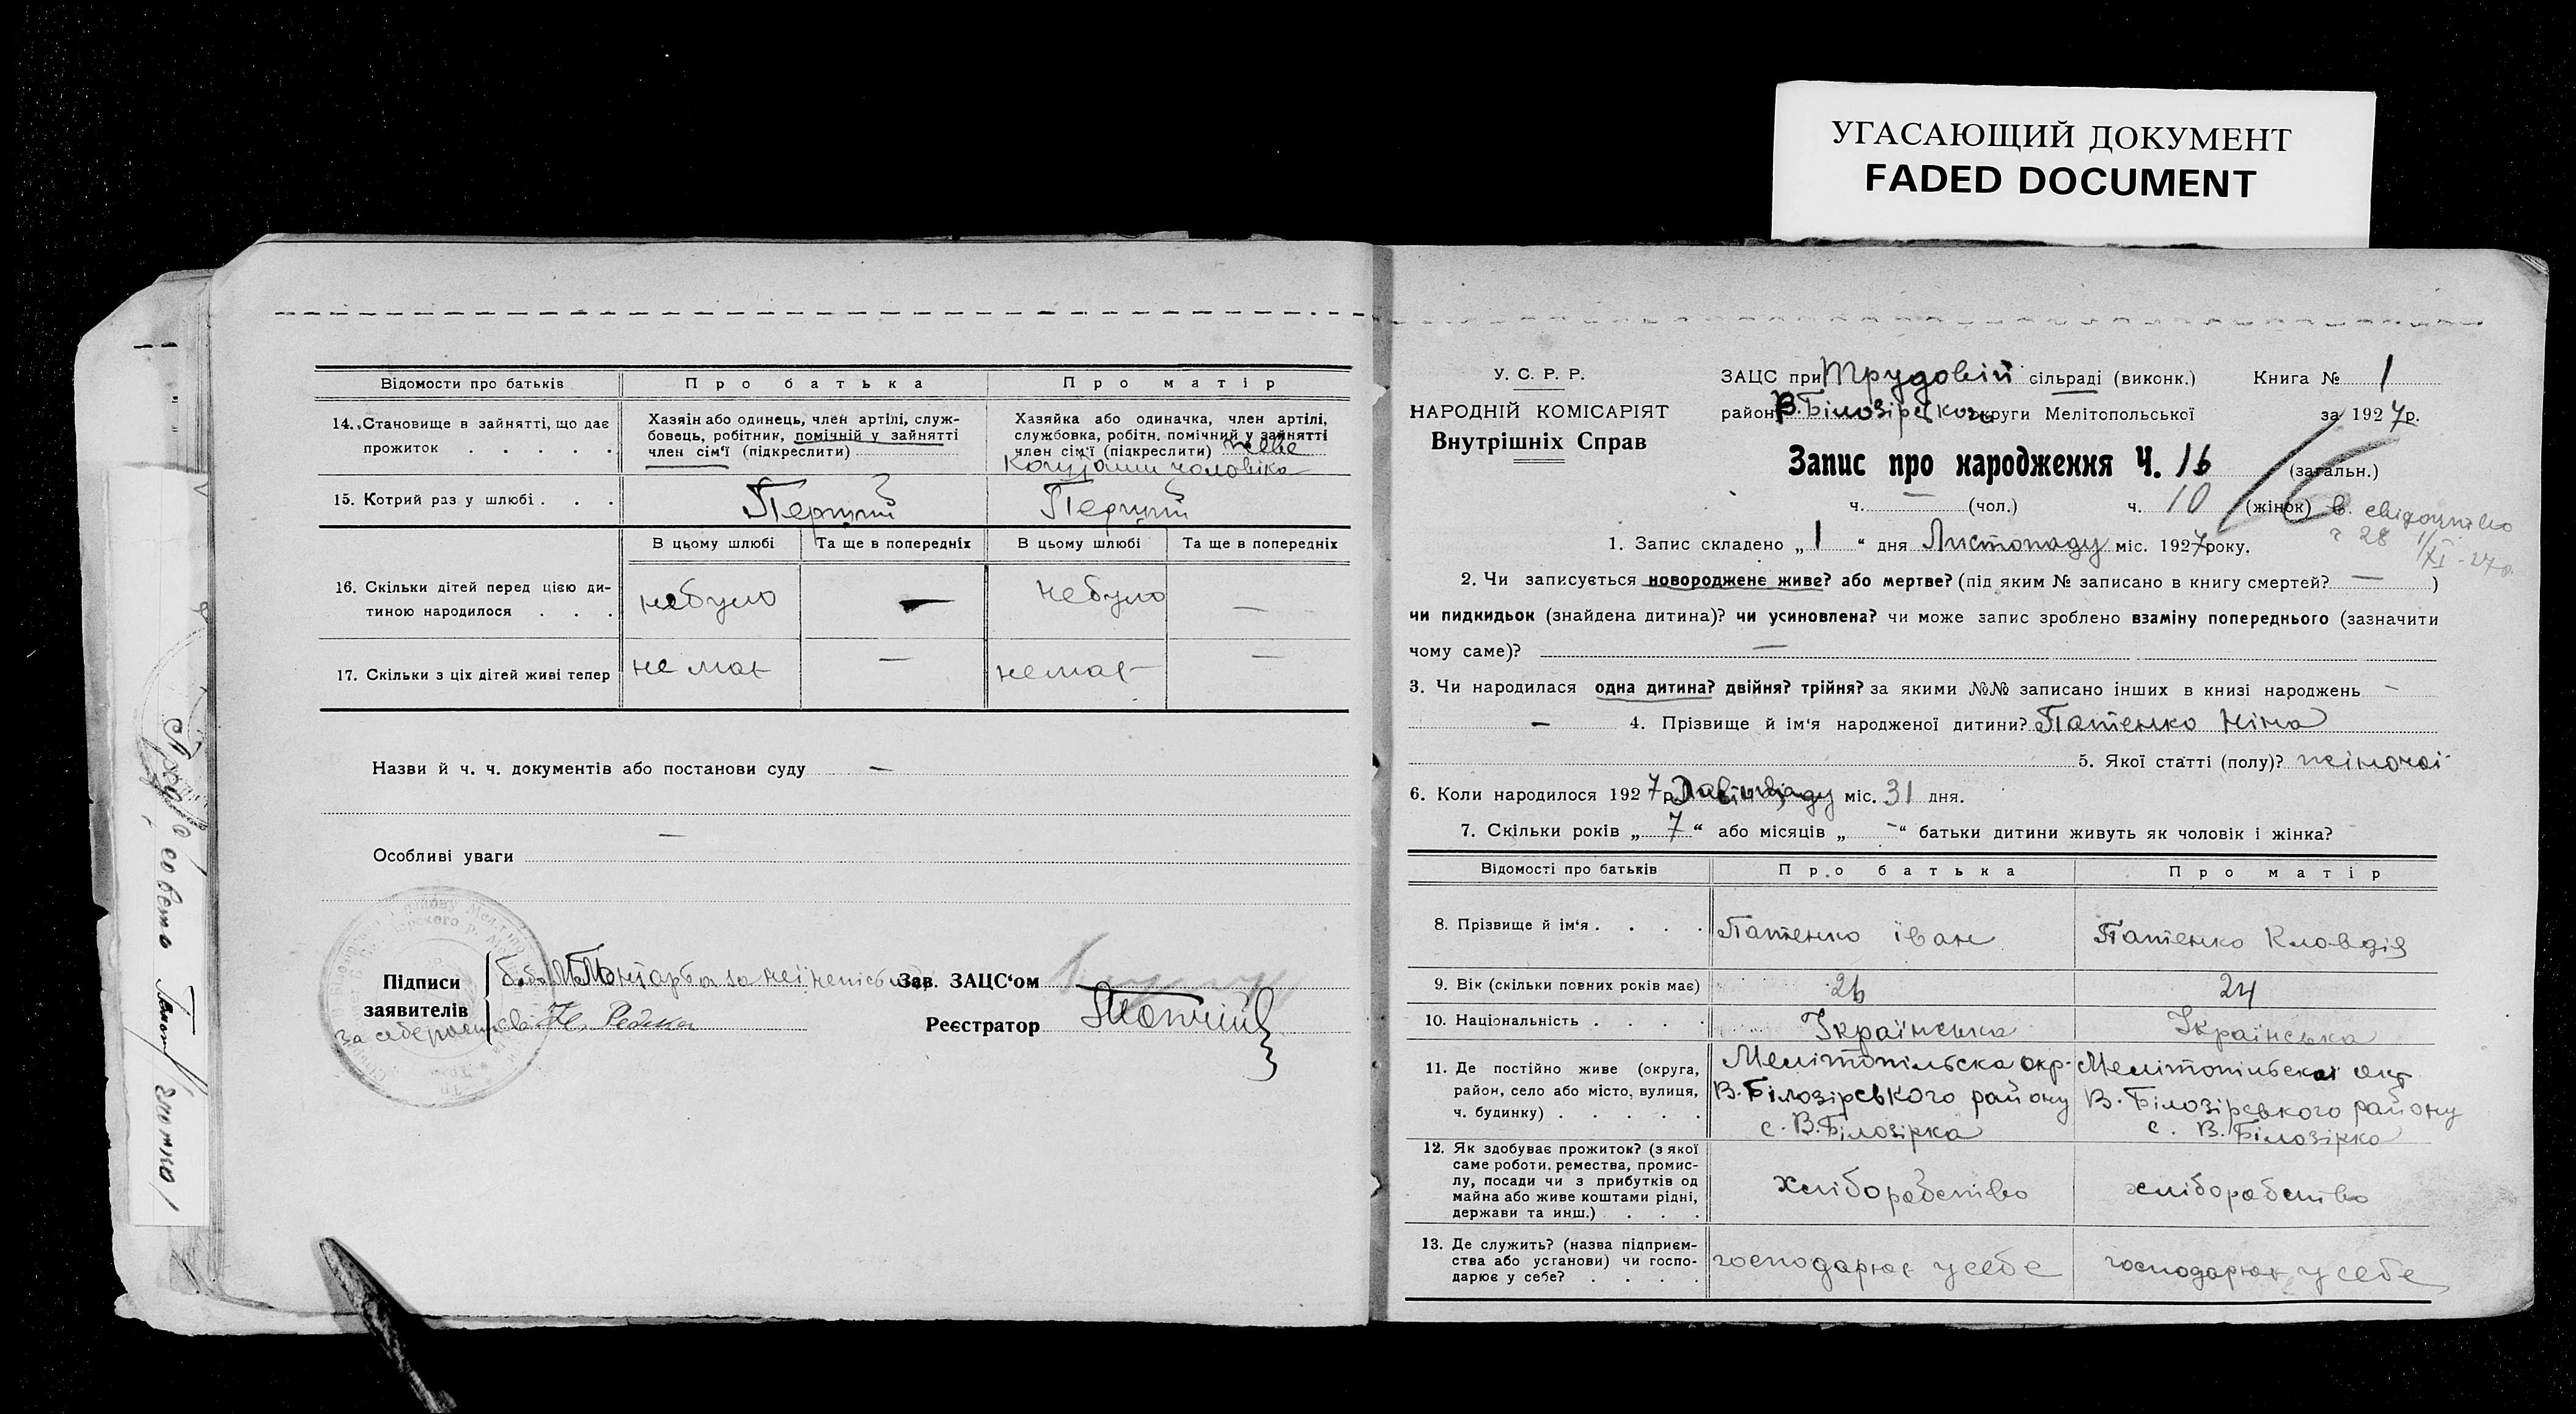 УГАСАЮЩИЙ ДОКУМЕНТ
FADED DOCUMENT
Відомости про батьків
Про батька
Про матір
14. Становище в зайнятті, що дає
прожиток . . . . .
Хазяін або одинець, член артілі, служ-
бовець, робітник, помічній у зайнятті
член сім'ї (підкреслити)
Хазяйка або одиначка, член артілі,
службовка, робітн. помічний у зайнятті
член сім'ї (підкреслити) живе
коштами чоловіка
15. Котрий раз у шлюбі . . .
Перший
Перший
В цьому шлюбі
Та ще в попередніх
В цьому шлюбі
Та ще в попередніх
16. Скільки дітей перед цією ди-
тиною народилося . . .
небуло
—
небуло
—
17. Скільки з ціх дітей живі тепер
не має
—
немає
—
Назви й ч. ч. документів або постанови суду —
—
Особливі уваги
Підписи
заявителів
за неї
Зав. ЗАЦС'ом
Реєстратор
У. С. Р. Р.
НАРОДНІЙ КОМІСАРІЯТ
Внутрішніх Справ
ЗАЦС при Трудовій сільраді (виконк.) Книга № 1
район В. Білозірськ округи Мелітопольської за 1927 р.
Запис про народження Ч. 16 (загальн.)
ч. — (чол.) ч. 10 (жінок)
в. свідоцтво
ч 28 1/XI-27 р.
1. Запис складено „ 1 “ дня Листопаду міс. 1927 року.
2. Чи записується новороджене живе? або мертве? (під яким № записано в книгу смертей? — )
чи пидкидьок (знайдена дитина)? чи усиновлена? чи може запис зроблено взаміну попереднього (зазначити
чому саме)? —
3. Чи народилася одна дитина? двійня? трійня? за якими №№ записано інших в книзі народжень —
— 4. Прізвище й ім'я народженої дитини? Патенко Ніна
5. Якої статті (полу)? жіночої
6. Коли народилося 1927 р. міс. 31 дня.
7. Скільки років „ 7 “ або місяців „ — “ батьки дитини живуть як чоловік і жінка?
Відомості про батьків
Про батька
Про матір
8. Прізвище й ім'я . . . .
Патенко Іван
Патенко Клавдія
9. Вік (скільки повних років має)
26
24
10. Національність . . . .
Українська
Українська
11. Де постійно живе (округа,
район, село або місто, вулиця,
ч. будинку) . . . . .
Мелітопільска окр.
В. Білозірського району
с. В. Білозірка
Мелітопільскоі окр
В. Білозірського району
с. В. Білозірка
12. Як здобуває прожиток? (з якої
саме роботи, ремества, промис-
лу, посади чи з прибутків од
майна або живе коштами рідні,
держави та инш.) . . .
хліборобство
хліборобство
13. Де служить? (назва підприєм-
ства або установи) чи госпо-
дарює у себе? . . . .
господарює у себе
господарює у себе